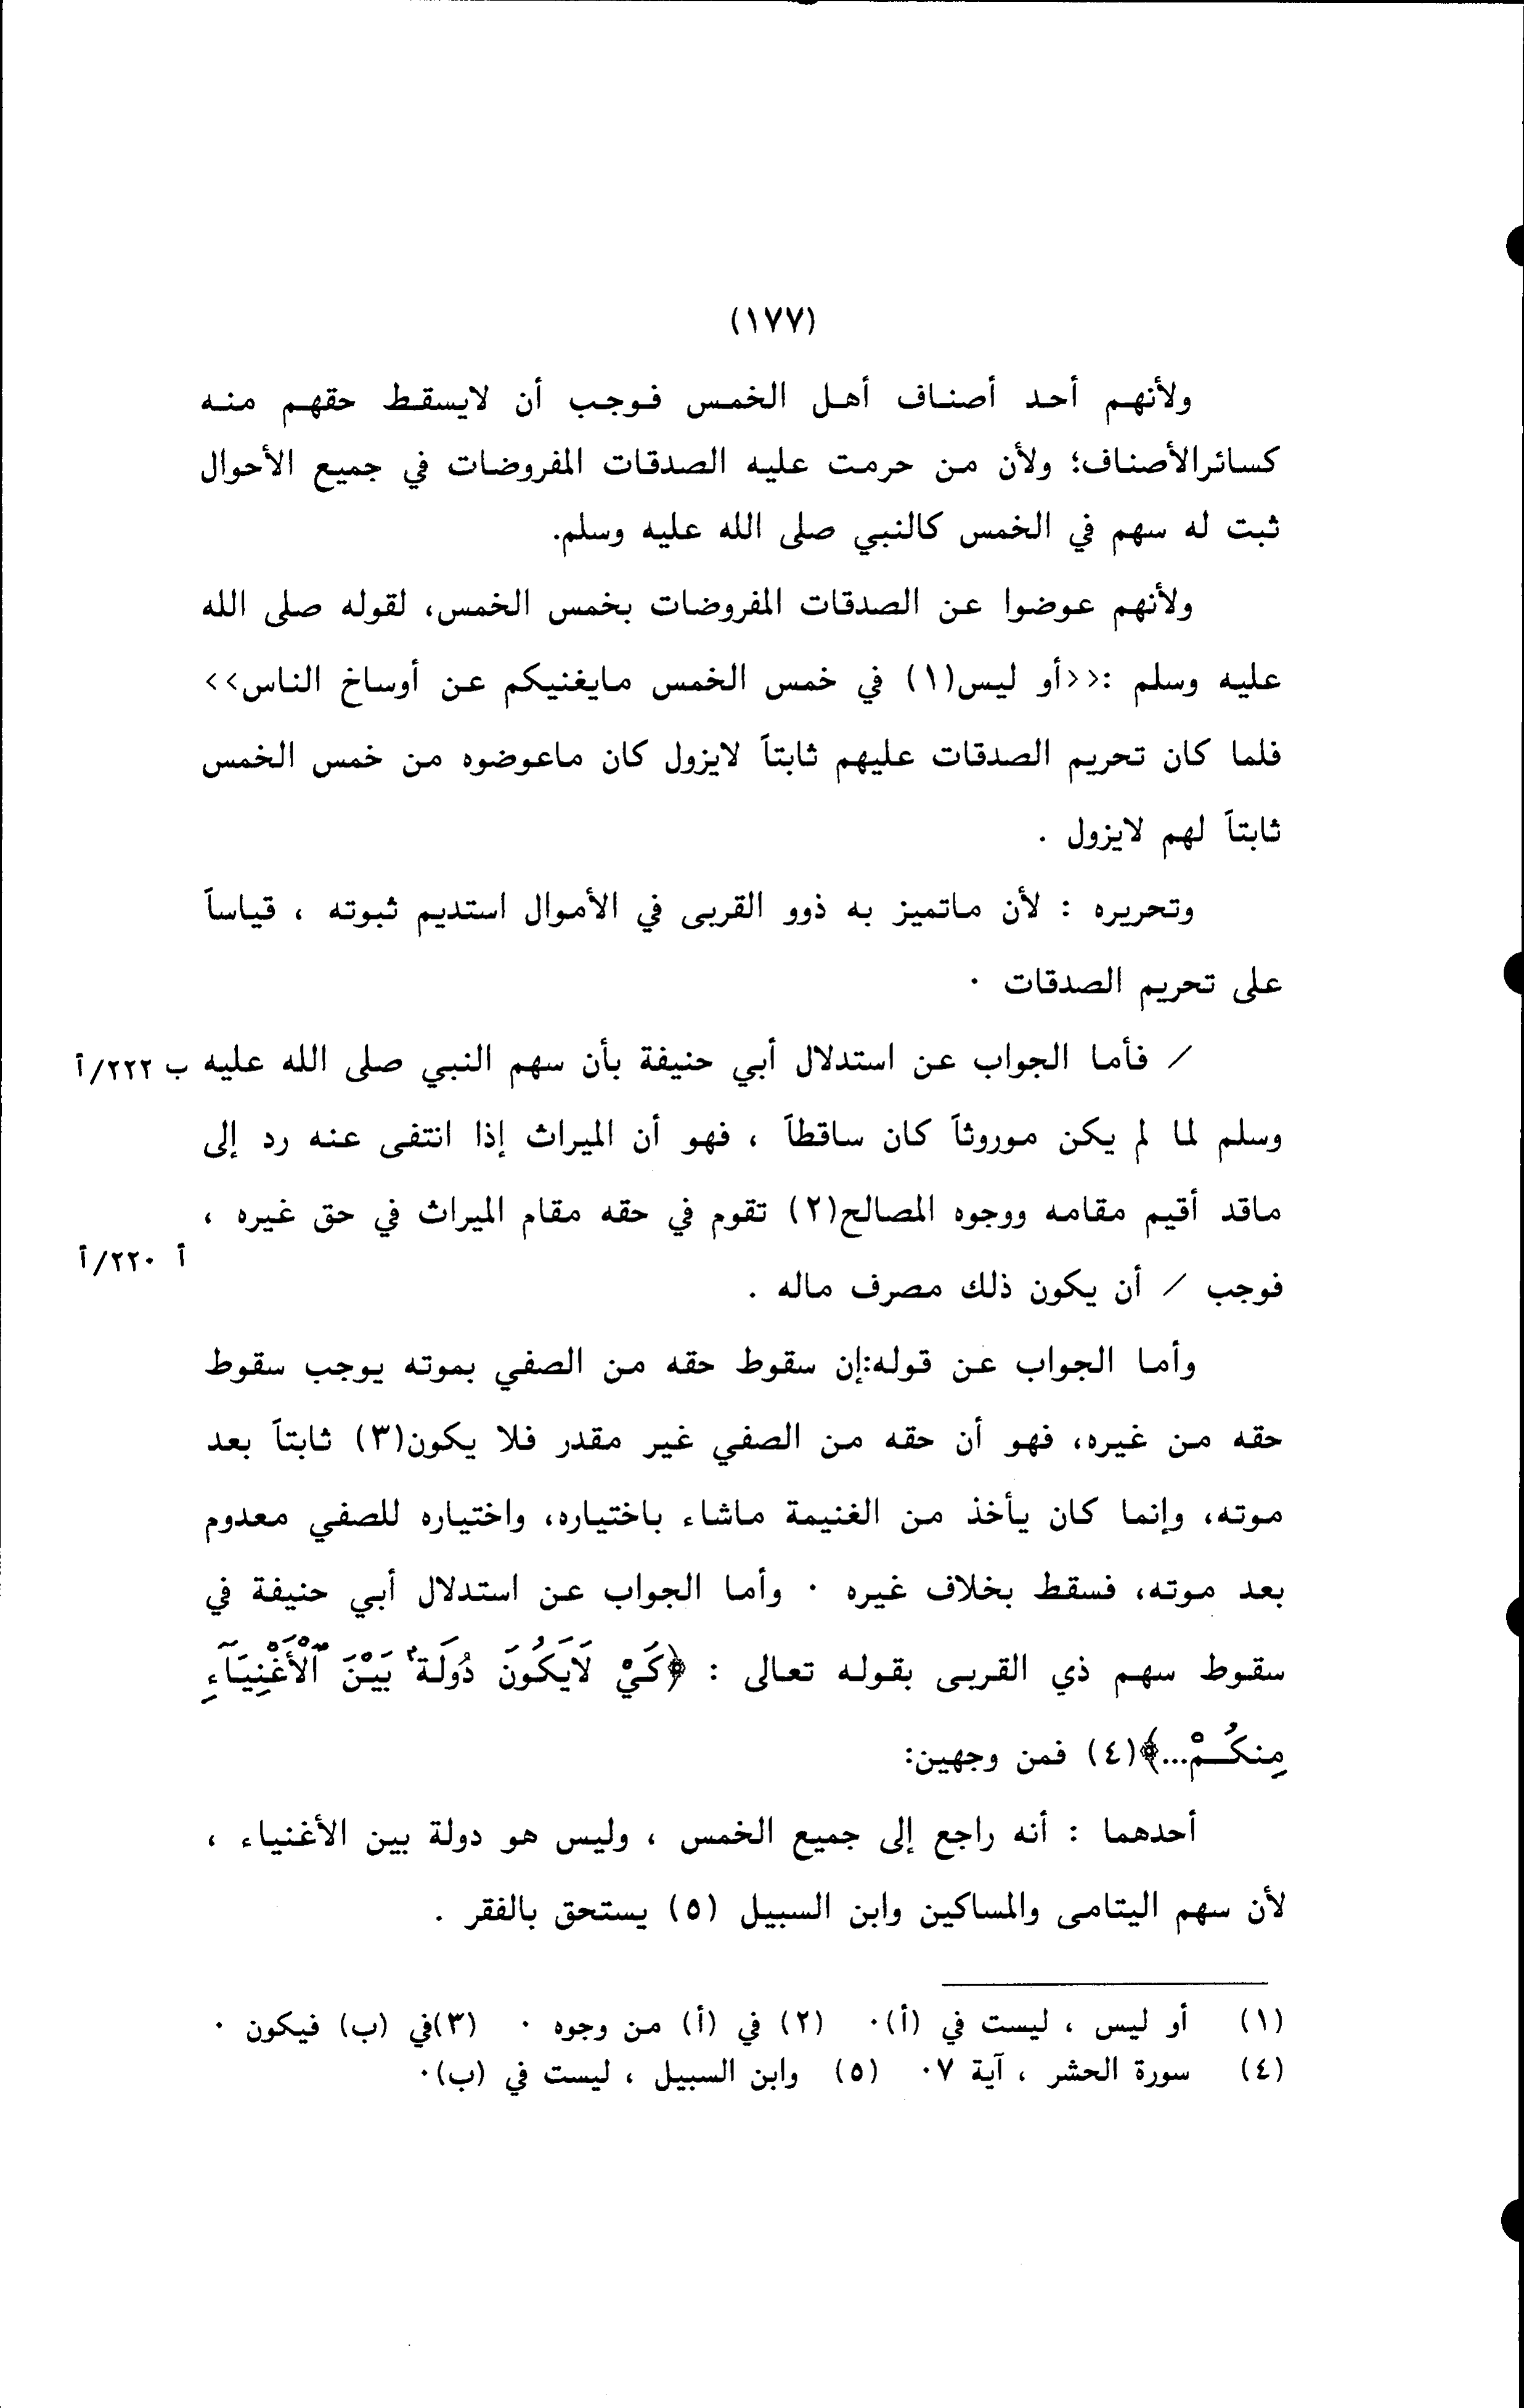 (١٧٧)
ولأنهم أحد أصناف أهل الخمس فوجب أن لايسقط حقهم منه
كسائرالأصناف؛ ولأن من حرمت عليه الصدقات المفروضات في جميع الأحوال
ثبت له سهم في الخمس كالنبي صلى الله عليه وسلم.
ولأنهم عوضوا عن الصدقات المفروضات بخمس الخمس، لقوله صلى الله
عليه وسلم :<<أو ليس(١) في خمس الخمس مايغنيكم عن أوساخ الناس>>
فلما كان تحريم الصدقات عليهم ثابتاً لايزول كان ماعوضوه من خمس الخمس
ثابتاً لهم لايزول .
وتحريره : لأن ماتميز به ذوو القربى في الأموال استديم ثبوته ، قياساً
على تحريم الصدقات ٠
/ فأما الجواب عن استدلال أبي حنيفة بأن سهم النبي صلى الله عليه ب ٢٢٢/أ
وسلم لما لم يكن موروثاً كان ساقطاً ، فهو أن الميراث إذا انتفى عنه رد إلى
ماقد أقيم مقامه ووجوه المصالح(٢) تقوم في حقه مقام الميراث في حق غيره ،
أ ٢٢٠/أ
فوجب / أن يكون ذلك مصرف ماله .
وأما الجواب عن قوله:إن سقوط حقه من الصفي بموته يوجب سقوط
حقه من غيره، فهو أن حقه من الصفي غير مقدر فلا يكون(٣) ثابتاً بعد
موته، وإنما كان يأخذ من الغنيمة ماشاء باختياره، واختياره للصفي معدوم
بعد موته، فسقط بخلاف غيره ٠ وأما الجواب عن استدلال أبي حنيفة في
سقوط سهم ذي القربى بقوله تعالى : ﴿كَيْ لَايَكُونَ دُولَةً بَيْنَ ٱلْأَغْنِيَآءِ
مِنكُمْ...﴾(٤) فمن وجهين:
أحدهما : أنه راجع إلى جميع الخمس ، وليس هو دولة بين الأغنياء ،
لأن سهم اليتامى والمساكين وابن السبيل (٥) يستحق بالفقر .
(١) أو ليس ، ليست في (أ)٠ (٢) في (أ) من وجوه ٠ (٣)في (ب) فيكون ٠
(٤) سورة الحشر ، آية ٧٠ (٥) وابن السبيل ، ليست في (ب)٠